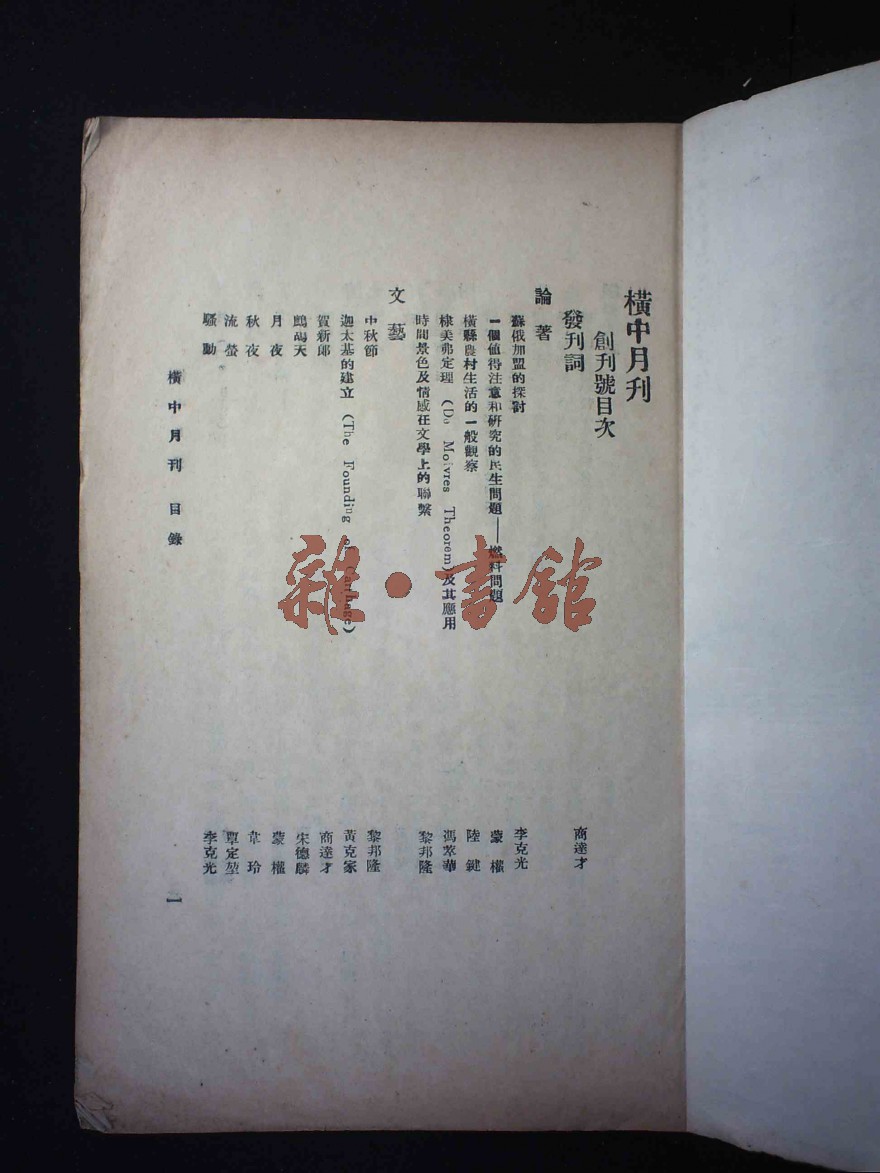 橫中月刊
創刊號目次
發刊詞 商達才
論著
蘇俄加盟的探討 李克光
一個值得注意和研究的民生問題——燃料問題 蒙權
橫縣農村生活的一般觀察 陸鍵
棣美弗定理 (De Moivres Theorem)及其應用 馮萃華
時間景色及情感在文學上的聯繫 黎邦隆
文藝
中秋節 黎邦隆
迦太基的建立 (The Founding of Carthage) 黃克家
賀新郎 商達才
鷓鴣天 宋德麟
月夜 蒙權
秋夜 韋玲
流螢 覃定堃
騷動 李克光
橫中月刊 目錄 一
雜·書館